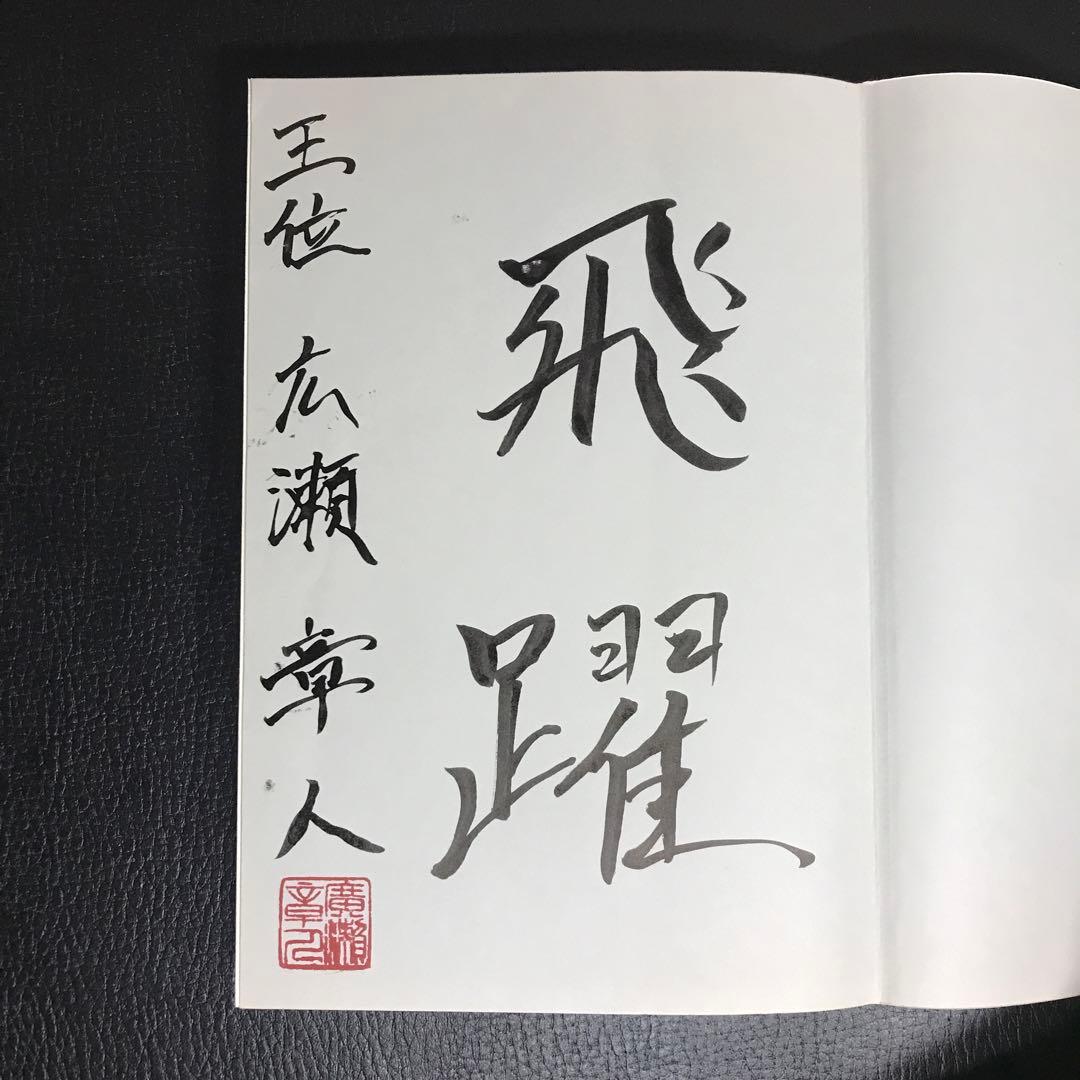 飛躍
王位 広瀬章人
廣瀬
章人